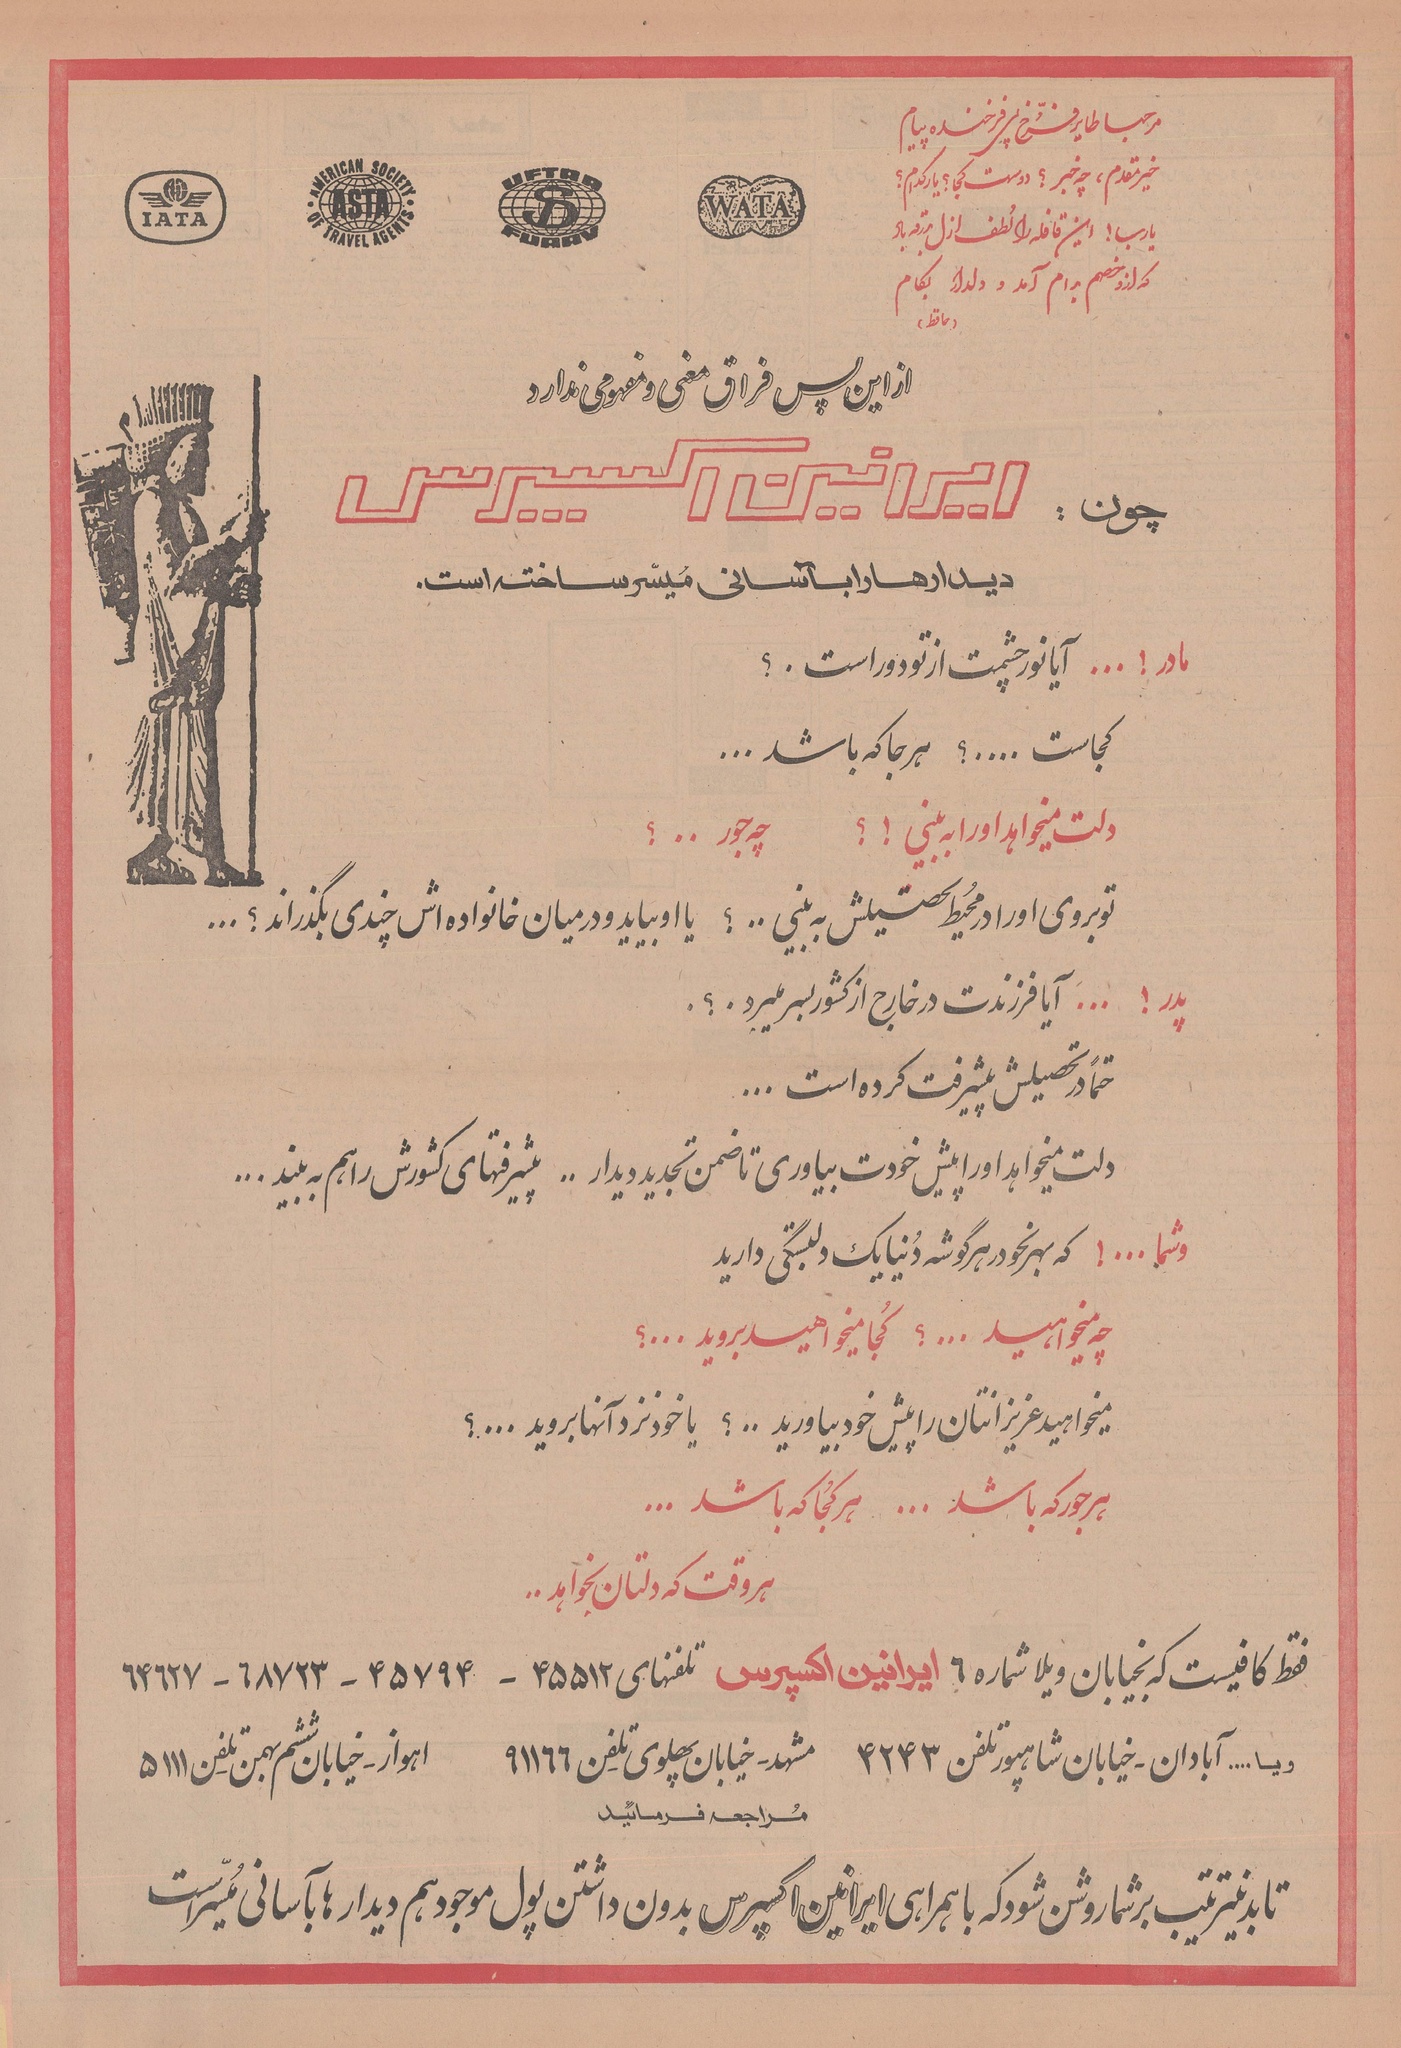 مرحبا طایر فرّخ پی فرخنده پیام
خیر مقدم، چه خبر؟ دوست کجا؟ یار کدام؟
یارب! این قافله را لُطف ازل بدرقه باد
که ازو خصم بدام آمد و دلدار بکام
(حافظ)
IATA
AMERICAN SOCIETY OF TRAVEL AGENTS
ASTA
UFTAA
FUAAV
WATA
از این پس فراق معنی و مفهومی ندارد
چون : ایرانین اکسپرس
دیدارها را بآسانی مُیسّر ساخته است.
مادر! ... آیا نور چشمت از تو دور است . ؟
کجاست ....؟ هر جا که باشد ...
دلت میخواهد او را به بینی ! ؟ چه جور .. ؟
تو بروی او را در محُیط تحصیلش به بینی .. ؟ یا او بیاید و در میان خانواده اش چندی بگذراند ؟ ...
پدر! ... آیا فرزندت در خارج از کشور بسر میبرد . ؟ .
حتماً در تحصیلش پیشرفت کرده است ...
دلت میخواهد او را پیش خودت بیاوری تا ضمن تجدید دیدار .. پیشرفتهای کشورش را هم به بیند ...
و شما ...! که بهر نحو در هر گوشه دُنیا یک دلبستگی دارید
چه میخواهید ...؟ کُجا میخواهید بروید ...؟
میخواهید عزیزانتان را پیش خود بیاورید ..؟ یا خود نزد آنها بروید ...؟
هر جور که باشد ... هر کُجا که باشد ...
هر وقت که دلتان بخواهد ..
فقط کافیست که بخیابان ویلا شماره ۶ ایرانین اکسپرس تلفنهای ۴۵۵۱۲ - ۴۵۷۹۴ - ۶۸۷۲۳ - ۶۴۶۲۷
و یا .... آبادان - خیابان شاهپور تلفن ۴۲۴۳ مشهد - خیابان پهلوی تلفن ۹۱۱۶۶ اهواز - خیابان ششم بهمن تلفن ۵۱۱۱
مُراجعه فرمائید
تا بدینترتیب بر شما روشن شود که با همراهی ایرانین اکسپرس بدون داشتن پول موجود هم دیدارها بآسانی مُیّسر است